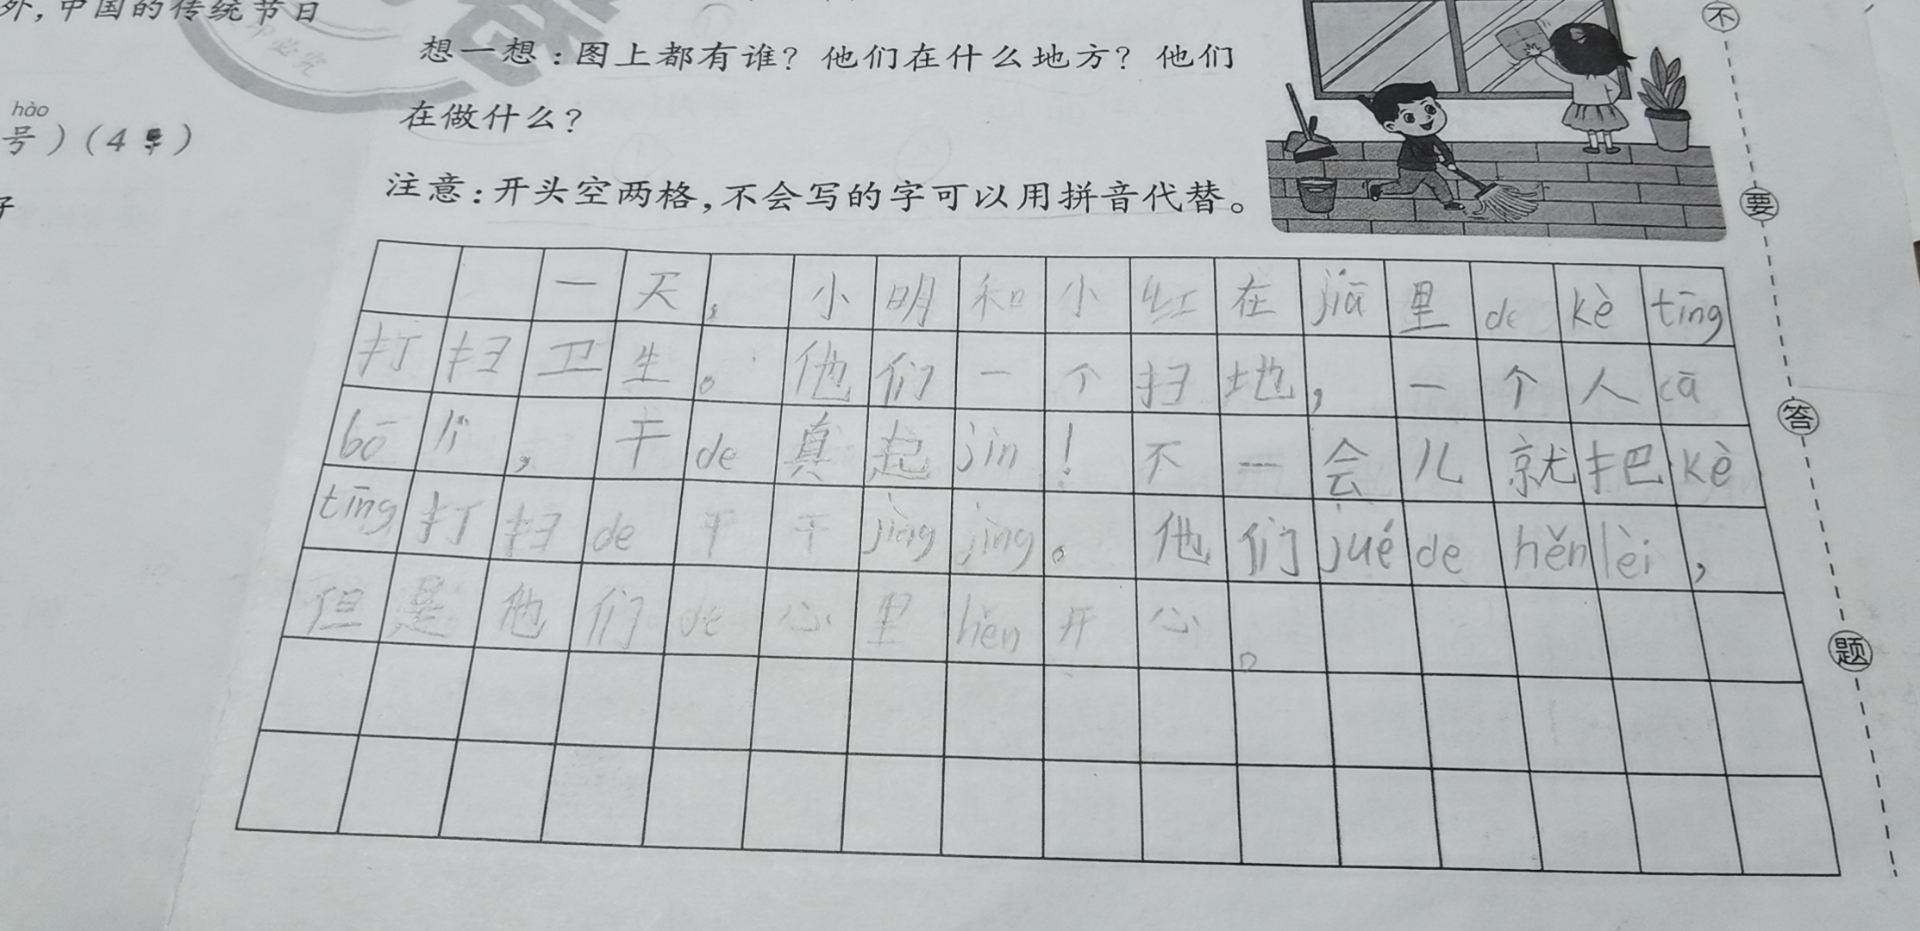 外,中国的传统节日
hào
号)(4 )
子
印必究
想一想:图上都有谁?他们在什么地方?他们
在做什么?
注意:开头空两格,不会写的字可以用拼音代替。
一天,小明和小红在jiā里de kè tīng
打扫卫生。他们一个扫地,一个人cā
bō lí,干de真起jìn!不一会儿就把kè
tīng打扫de干干jìng jìng。他们jué de hěn lèi,
但是他们de心里hěn开心。
不
要
答
题